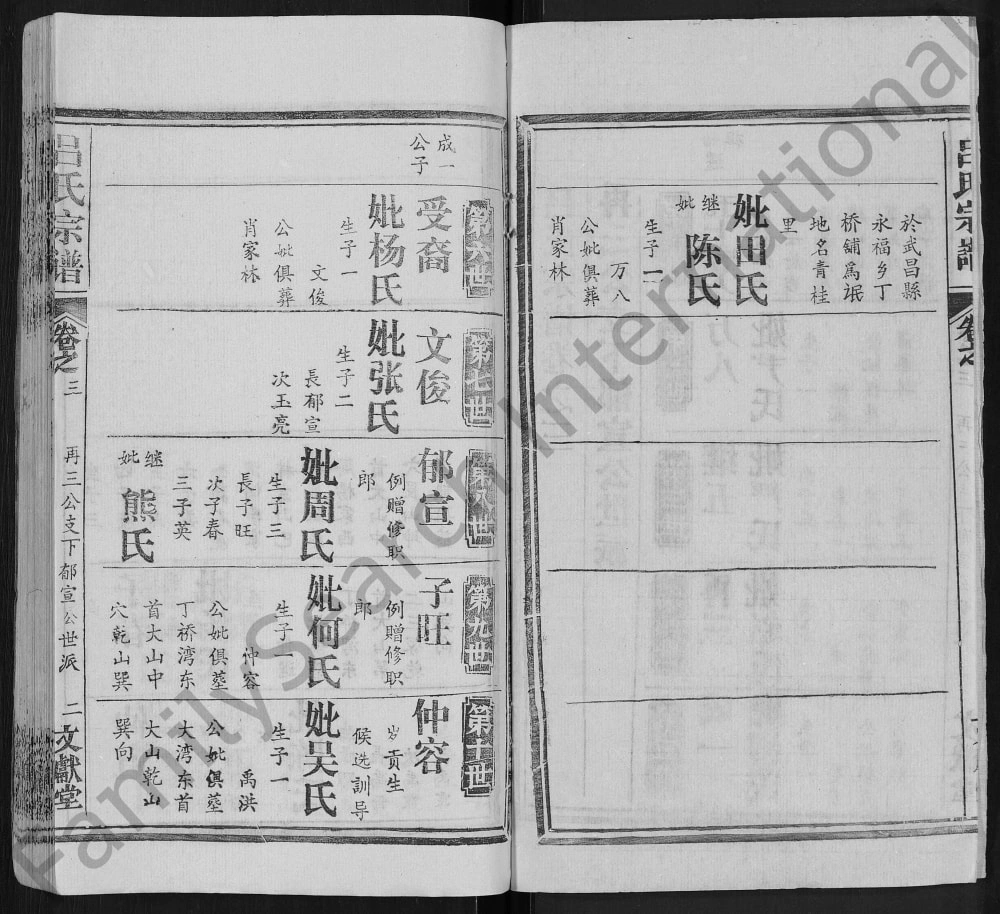 吕氏宗譜
卷之
三
於武昌縣
永福乡丁
桥舖爲氓
地名青桂
里
妣田氏
继妣陈氏
生子一
万八
公妣俱葬
肖家林
成一
公子
第六世
受裔
妣杨氏
生子一
文俊
公妣俱葬
肖家林
第七世
文俊
妣张氏
生子二
長郁宣
次玉亮
第八世
郁宣
例赠修职
郎
妣周氏
生子三
長子旺
次子春
三子英
继妣熊氏
第九世
子旺
例赠修职
郎
妣何氏
生子一
仲容
公妣俱墓
丁桥湾东
首大山中
穴乾山巽
第十世
仲容
岁贡生
候选訓导
妣吴氏
生子一
禹洪
公妣俱墓
大湾东首
大山乾山
巽向
吕氏宗谱
卷之
三
再三公支下郁宣公世派
二
文獻堂
FamilySearch International